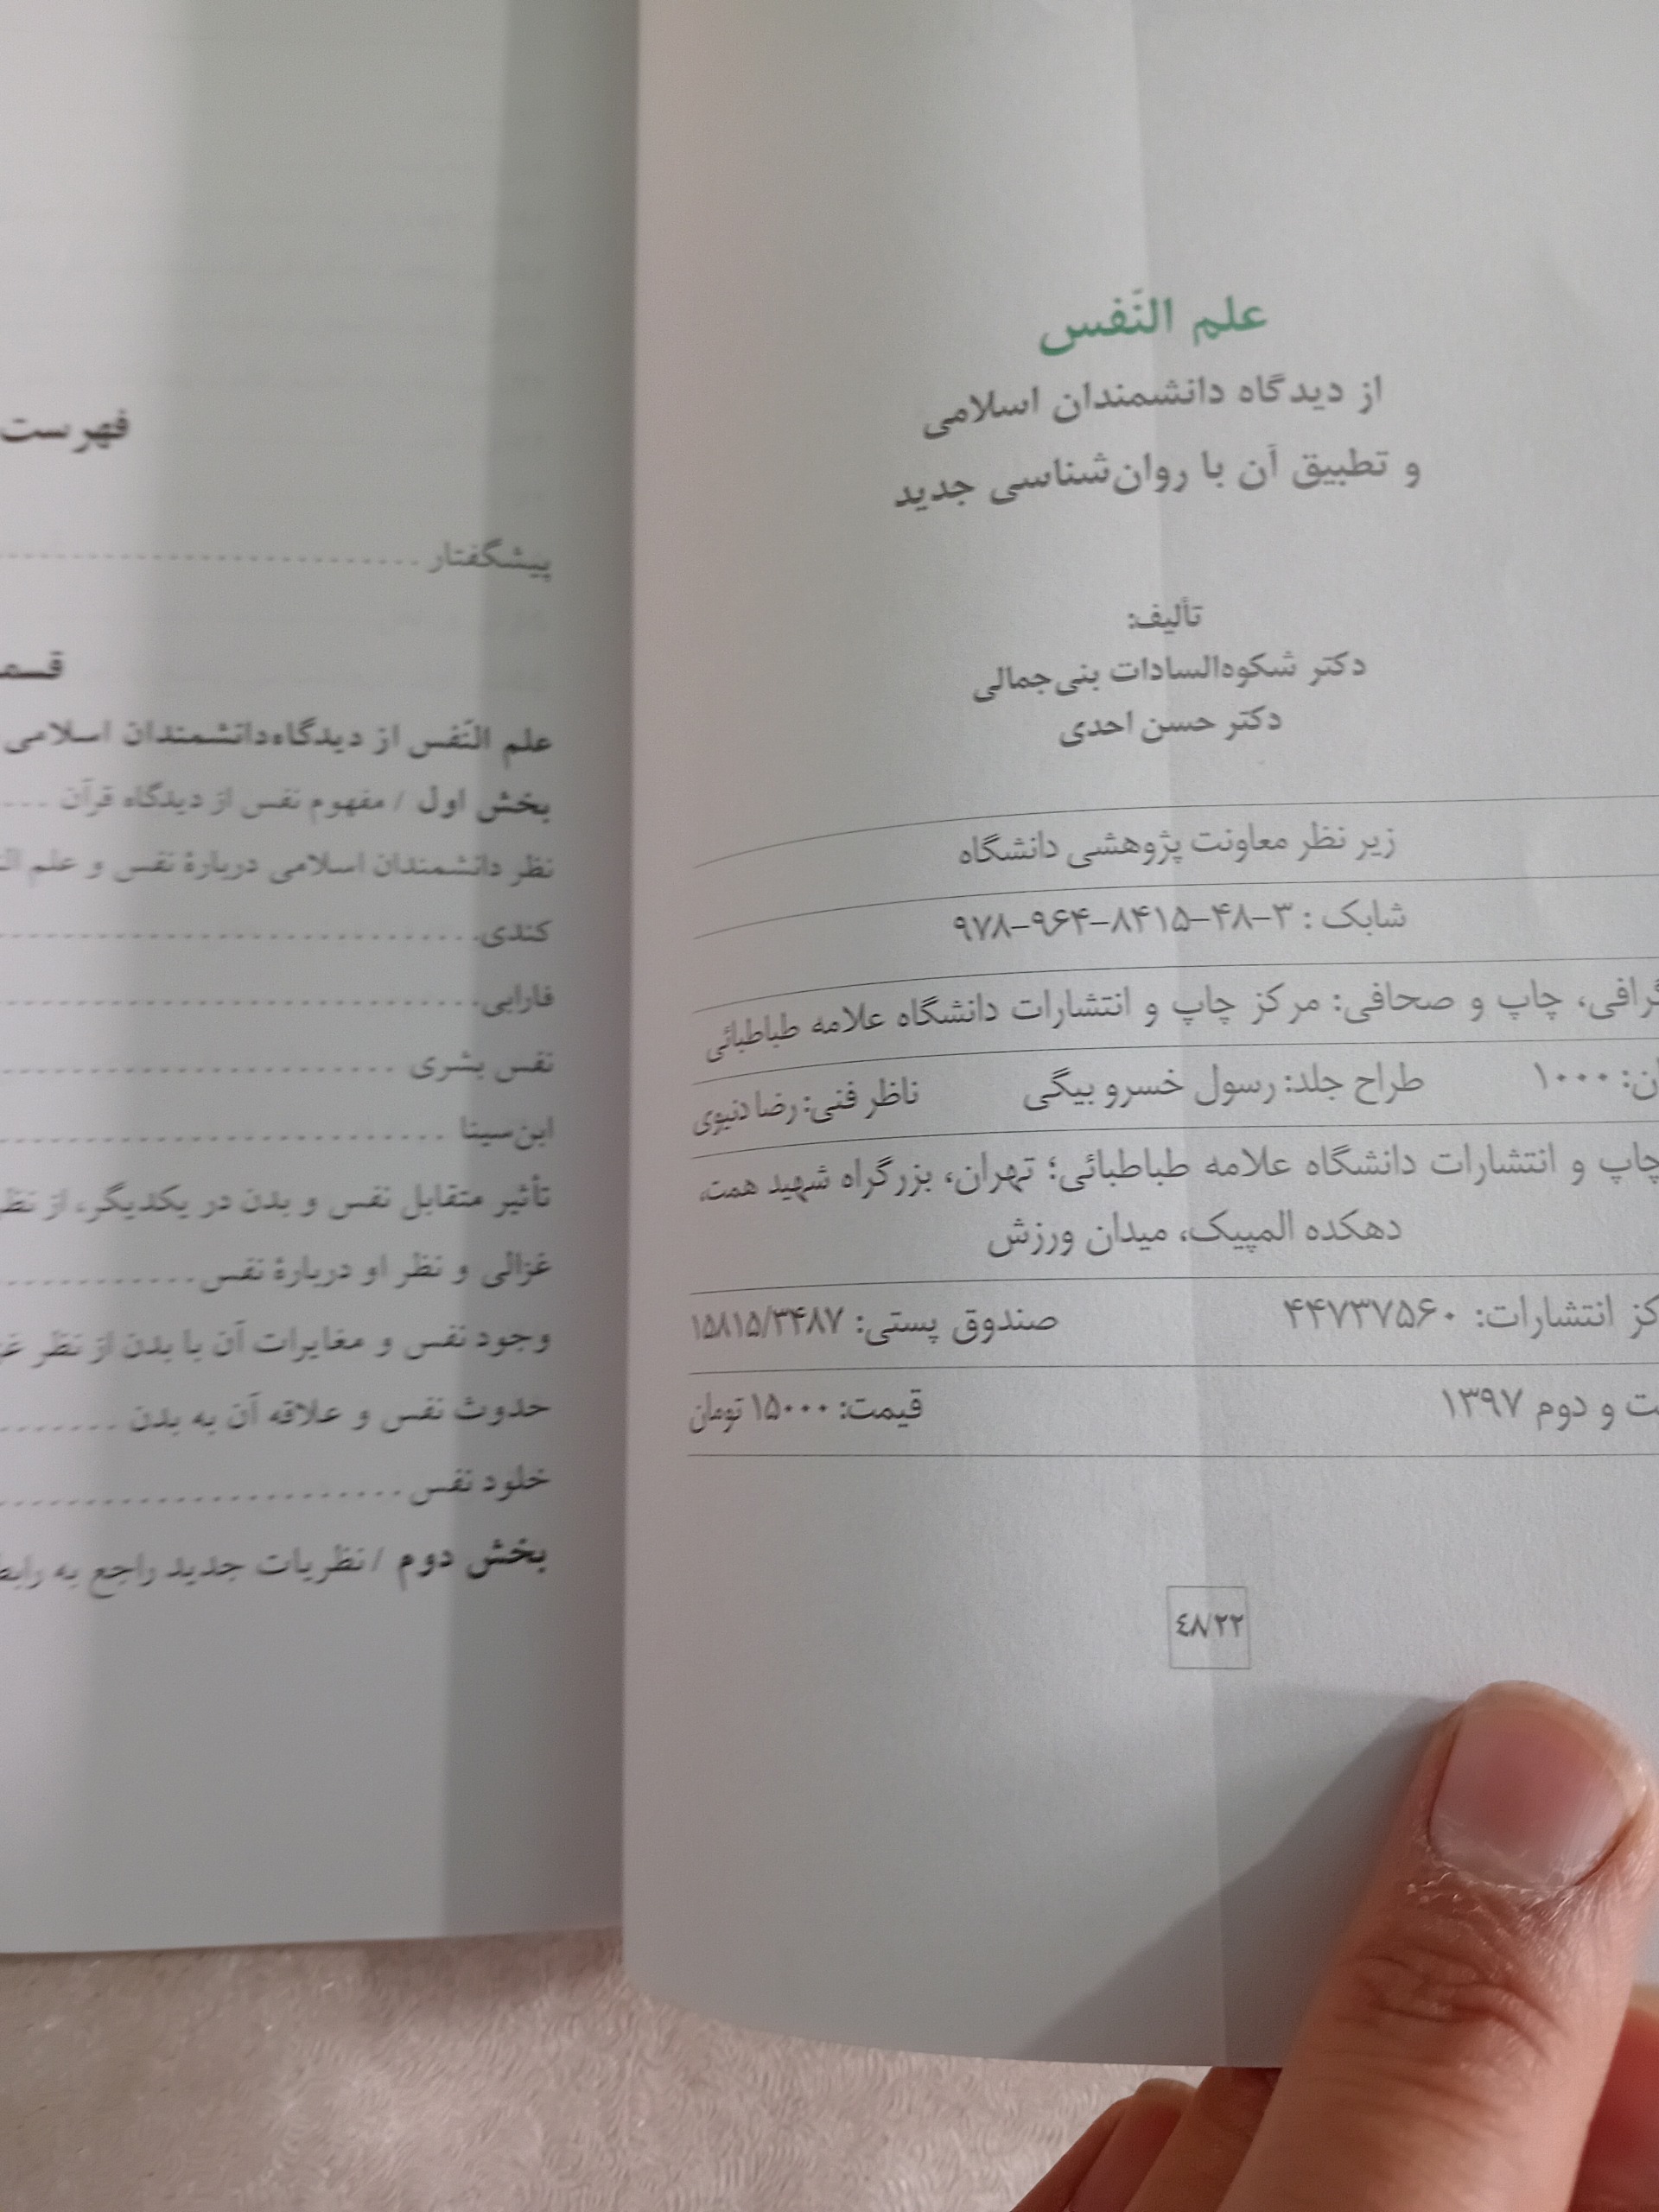 علم النَّفس
از دیدگاه دانشمندان اسلامی
و تطبیق آن با روان‌شناسی جدید
تألیف:
دکتر شکوه‌السادات بنی‌جمالی
دکتر حسن احدی
زیر نظر معاونت پژوهشی دانشگاه
شابک : ۳-۴۸-۸۴۱۵-۹۶۴-۹۷۸
چاپ و صحافی: مرکز چاپ و انتشارات دانشگاه علامه طباطبائی
۱۰۰۰ طراح جلد: رسول خسرو بیگی ناظر فنی: رضا دنیوی
چاپ و انتشارات دانشگاه علامه طباطبائی؛ تهران، بزرگراه شهید همت،
دهکده المپیک، میدان ورزش
انتشارات: ۴۴۷۳۷۵۶۰ صندوق پستی: ۱۵۸۱۵/۳۴۸۷
و دوم ۱۳۹۷ قیمت: ۱۵۰۰۰ تومان
٤٨/٢٢
فهرست
پیشگفتار
علم النَّفس از دیدگاه‌دانشمندان اسلامی
بخش اول / مفهوم نفس از دیدگاه قرآن
نظر دانشمندان اسلامی دربارهٔ نفس و علم
کندی
فارابی
نفس بشری
ابن‌سینا
تأثیر متقابل نفس و بدن در یکدیگر، از
غزالی و نظر او دربارهٔ نفس
وجود نفس و مغایرات آن با بدن از نظر
حدوث نفس و علاقه آن به بدن
خلود نفس
بخش دوم / نظریات جدید راجع به